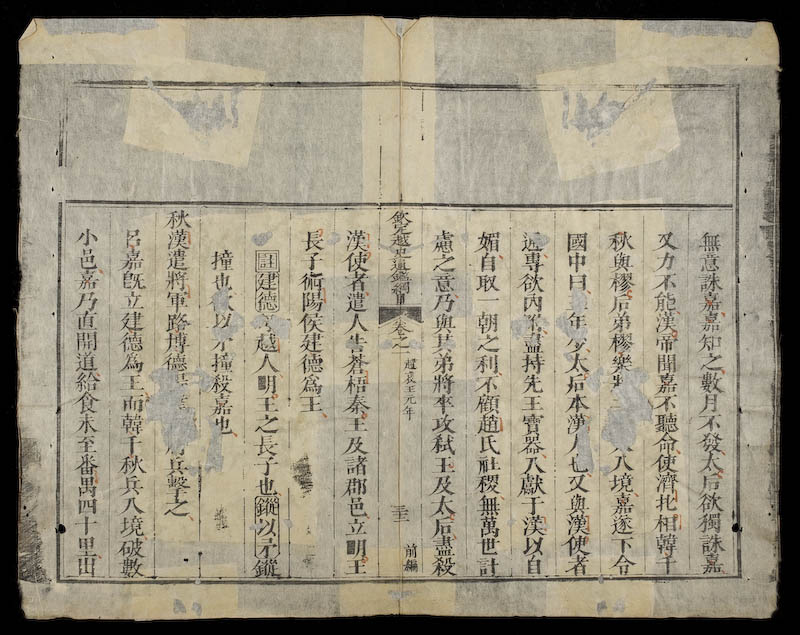 無意誅嘉嘉知之數月不發太后欲獨誅嘉
又力不能漢帝聞嘉不聽命使濟北相韓千
秋與樛后弟樛樂將人入境嘉遂下令
國中曰年少太后本漢人也又與漢使者
近專欲內附盡持先王寶器入獻于漢以自
媚自取一朝之利不顧趙氏社稷無萬世計
慮之意乃與其弟將卒攻弒王及太后盡殺
欽定越史通鑑綱目 卷之 趙哀王元年 前編
漢使者遣人告蒼梧秦王及諸郡邑立明王
長子術陽侯建德爲王
註建德越人明王之長子也鏦以矛鏦
撞也以矛撞殺嘉也
秋漢遣將軍路博德兵擊之
呂嘉旣立建德爲王而韓千秋兵入境破數
小邑嘉乃直開道給食未至番禺四十里出